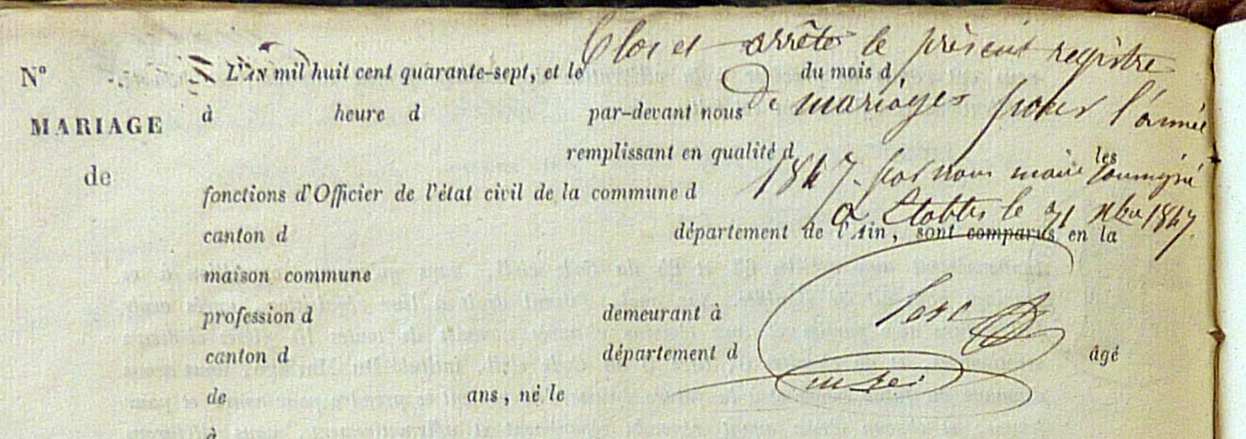 Clos et arrêté le présent registre
N° L'AN mil huit cent quarante-sept, et le du mois d
de mariages pour l'année
MARIAGE à heure d par-devant nous
remplissant en qualité d
de
1847. par nous maire les soussigné
fonctions d'Officier de l'état civil de la commune d
à le 31 xbre 1847.
canton d département de l'Ain, sont comparus en la
maison commune
profession d demeurant à
canton d département d âgé
de ans, né le
à